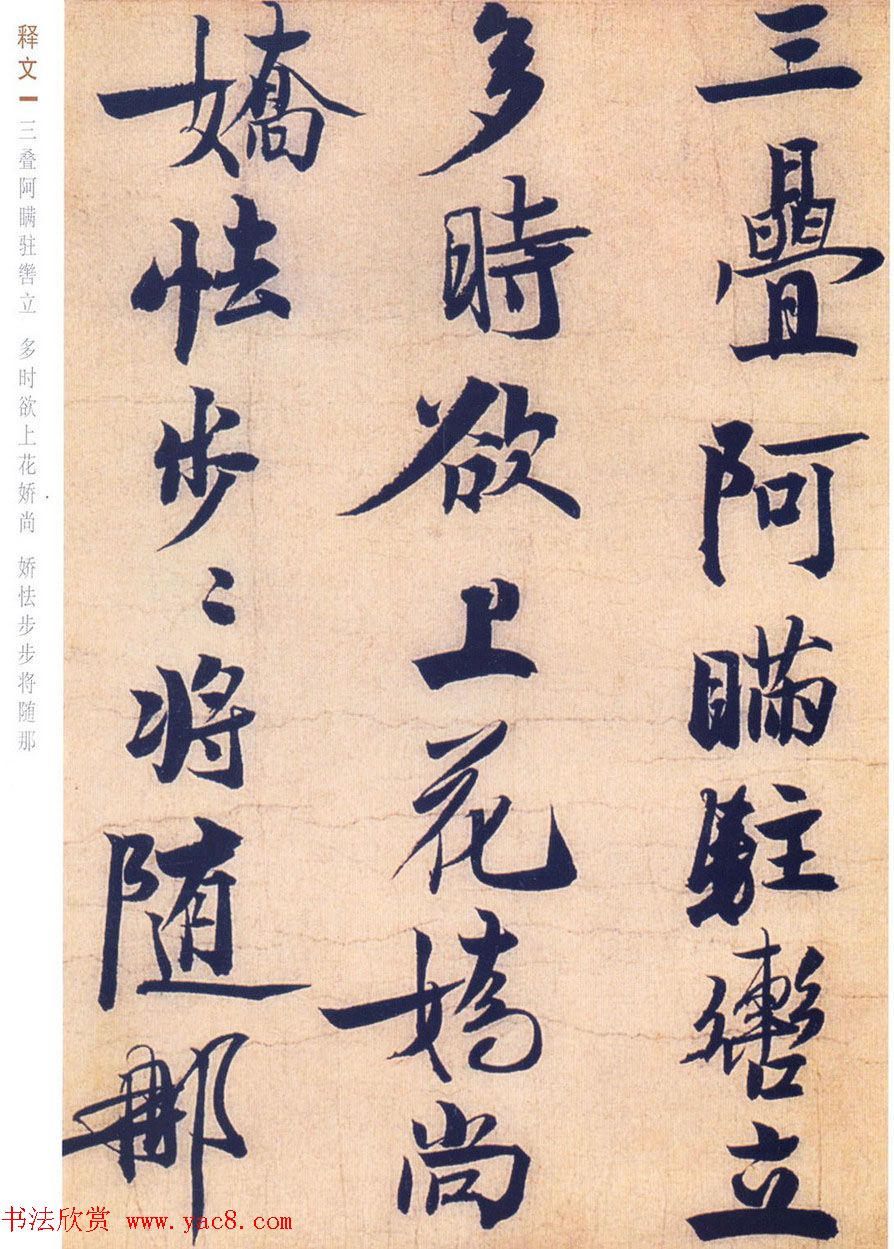 三疊阿瞞駐轡立
多時欲上花嬌尚
嬌怯步〻將随那
释文
三叠阿瞒驻辔立 多时欲上花娇尚 娇怯步步将随那
书法欣赏 www.yac8.com